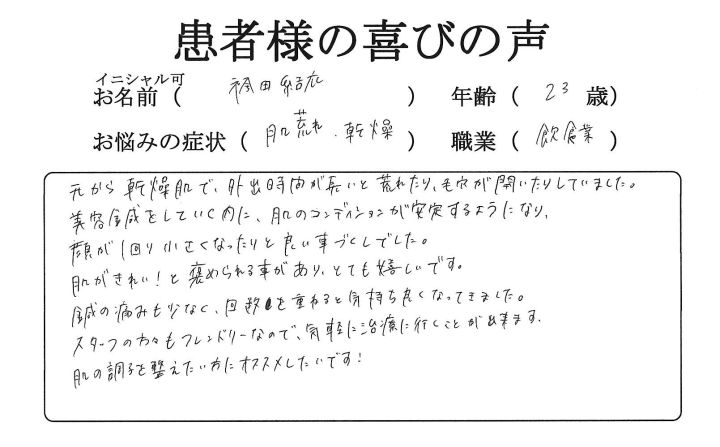 患者様の喜びの声
イニシャル可
お名前（ 袴田 結衣 ） 年齢（ 23 歳）
お悩みの症状（ 肌荒れ・乾燥 ） 職業（ 飲食業 ）
元から乾燥肌で、外出時間が長いと荒れたり、毛穴が開いたりしていました。
美容鍼をしていく内に、肌のコンディションが安定するようになり、
顔が1回り小さくなったりと良い事づくしでした。
肌がきれい！と褒められる事があり、とても嬉しいです。
鍼の痛みも少なく、回数を重ねると気持ち良くなってきました。
スタッフの方々もフレンドリーなので、気軽に治療に行くことが出来ます。
肌の調子を整えたい方にオススメしたいです！